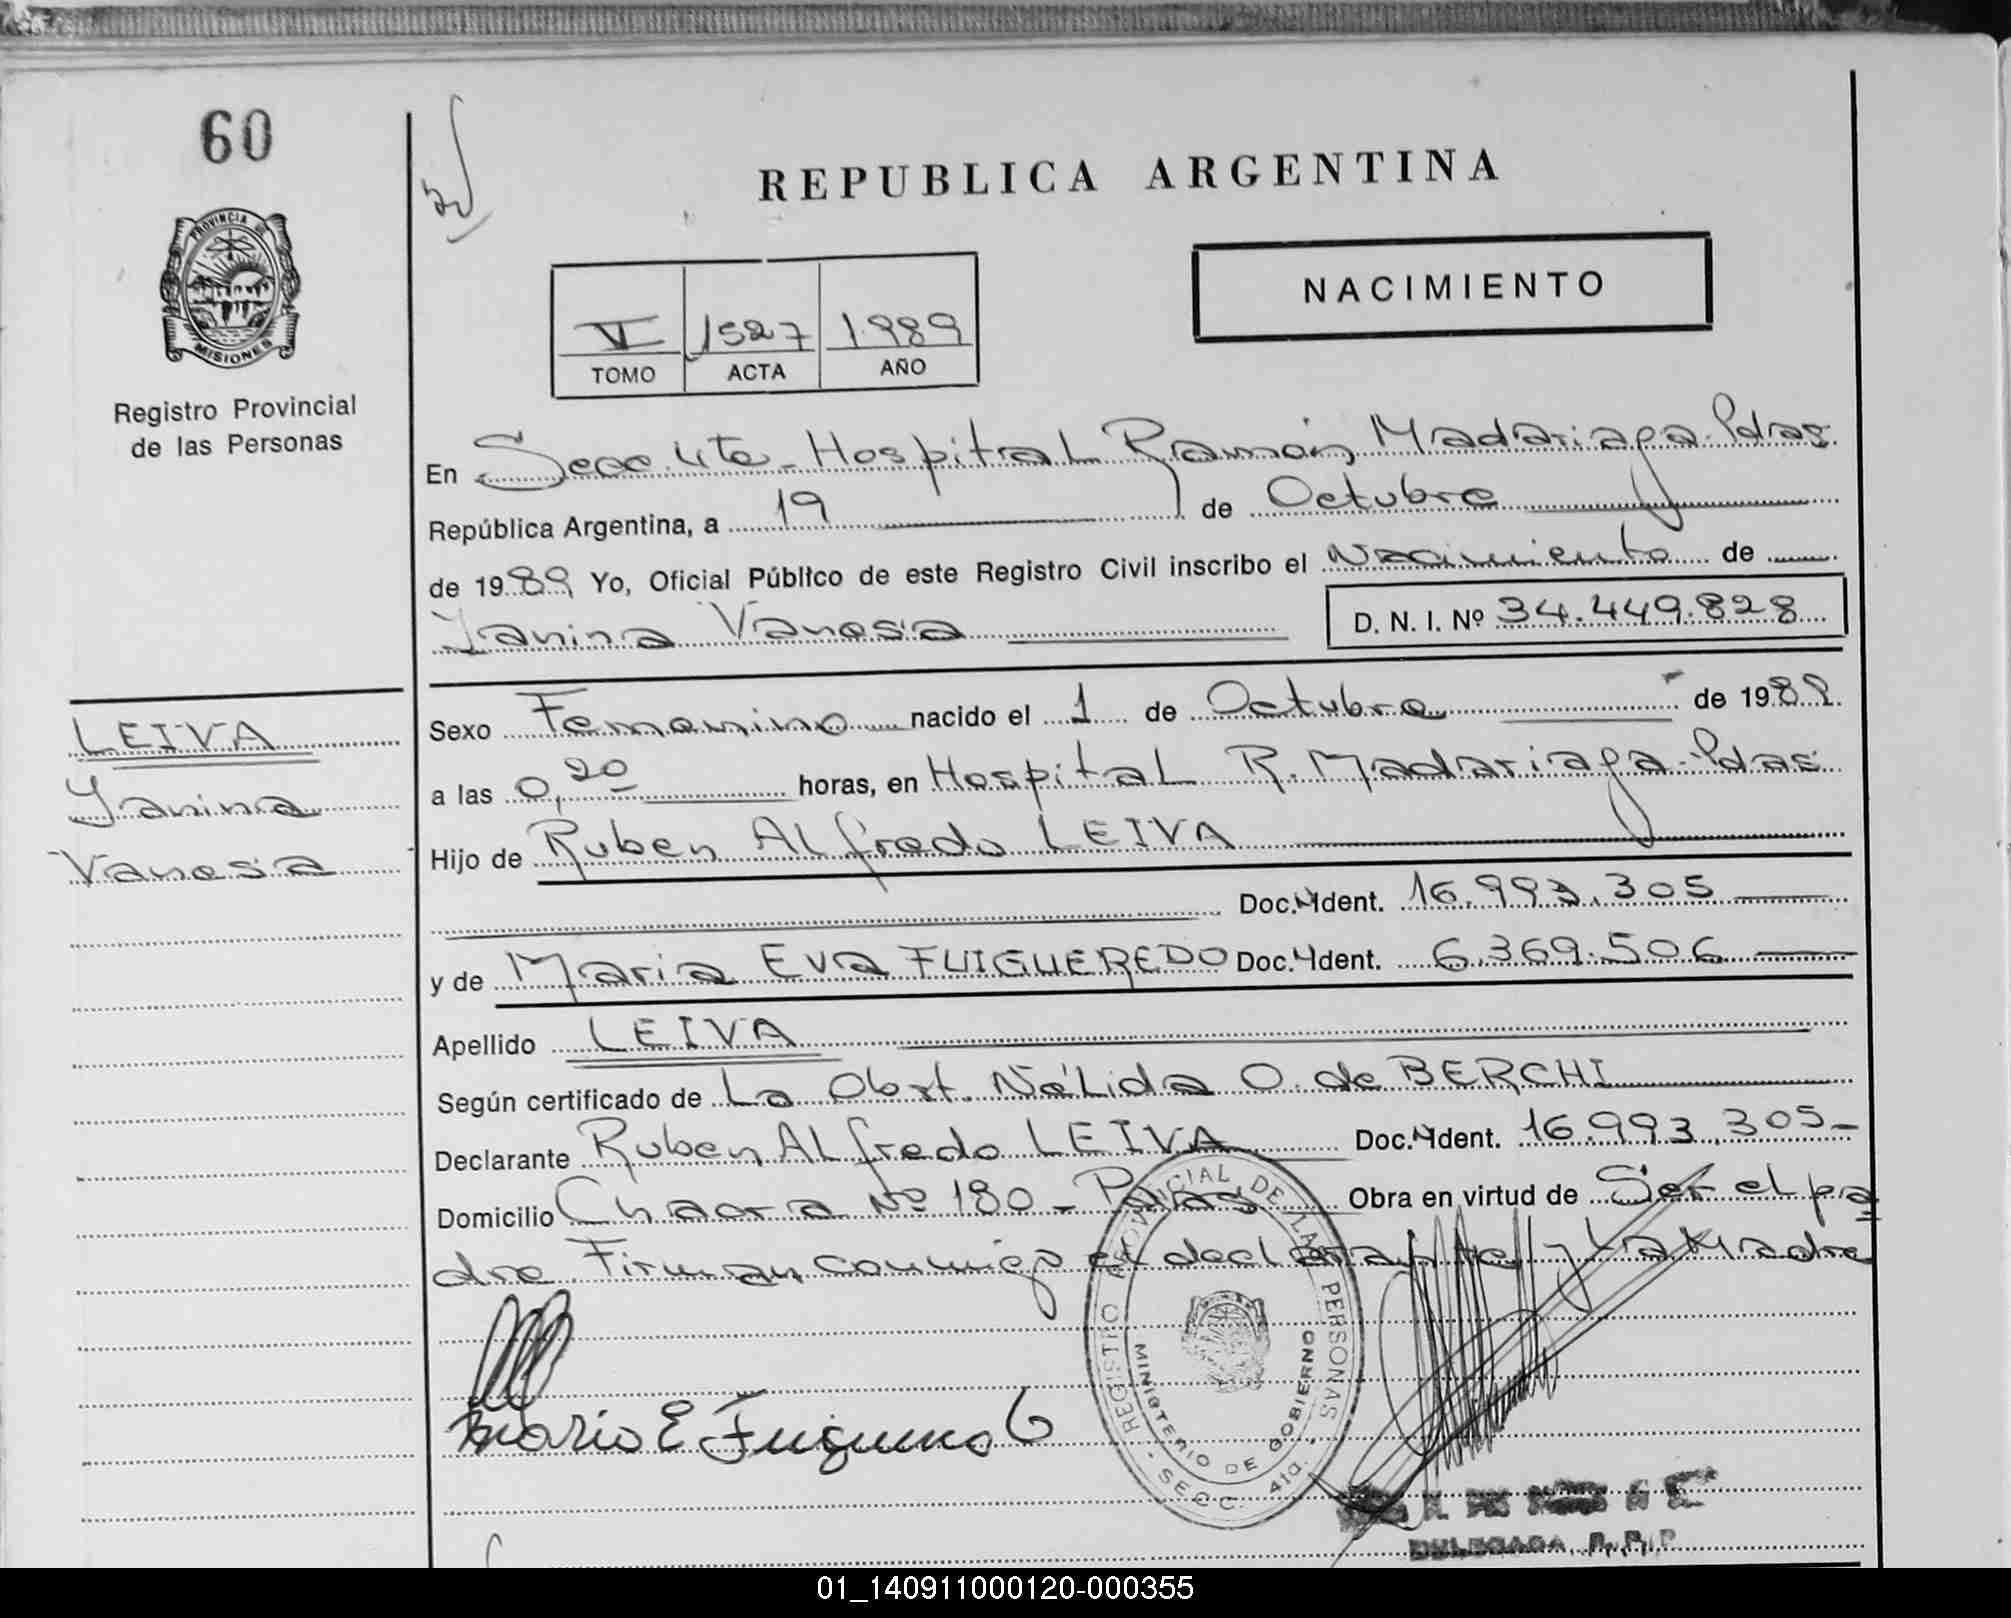 60
PROVINCIA DE
MISIONES
Registro Provincial
de las Personas
REPUBLICA ARGENTINA
NACIMIENTO
VI 1527 1989
TOMO ACTA AÑO
En Secc. 4ta - Hospital Ramón Madariaga - Pdas
República Argentina, a 19 de Octubre
de 1989 Yo, Oficial Público de este Registro Civil inscribo el Nacimiento de
Yanina Vanesa D. N. I. Nº 34.449.828
Sexo Femenino nacido el 1 de Octubre de 1989
a las 0,20 horas, en Hospital R. Madariaga - Pdas
Hijo de Ruben Alfredo LEIVA
Doc. Ident. 16.993.305
y de Maria Eva FUIGUEREDO Doc. Ident. 6.369.506
Apellido LEIVA
Según certificado de La Obst. Nélida O. de BERCHI
Declarante Ruben Alfredo LEIVA Doc. Ident. 16.993.305-
Domicilio Chacra Nº 180 - Pdas Obra en virtud de Ser el pa
dre Firman conmigo el declarante y La Madre
LEIVA
Yanina
Vanesa
REGISTRO PROVINCIAL DE LAS PERSONAS
MINISTERIO DE GOBIERNO
- SECC. 4ta. -
Maria E
DELEGADA R. P. P.
01_140911000120-000355